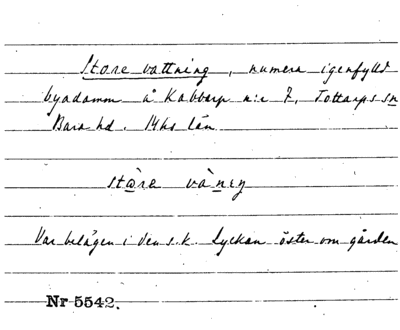 Store vattning, numera igenfylld
byadamm å Kabbarp n:r 7, Tottarps sn
Bara hd. Mhs län.
Var belägen i den s.k. Lyckan öster om gården
Nr 5542.